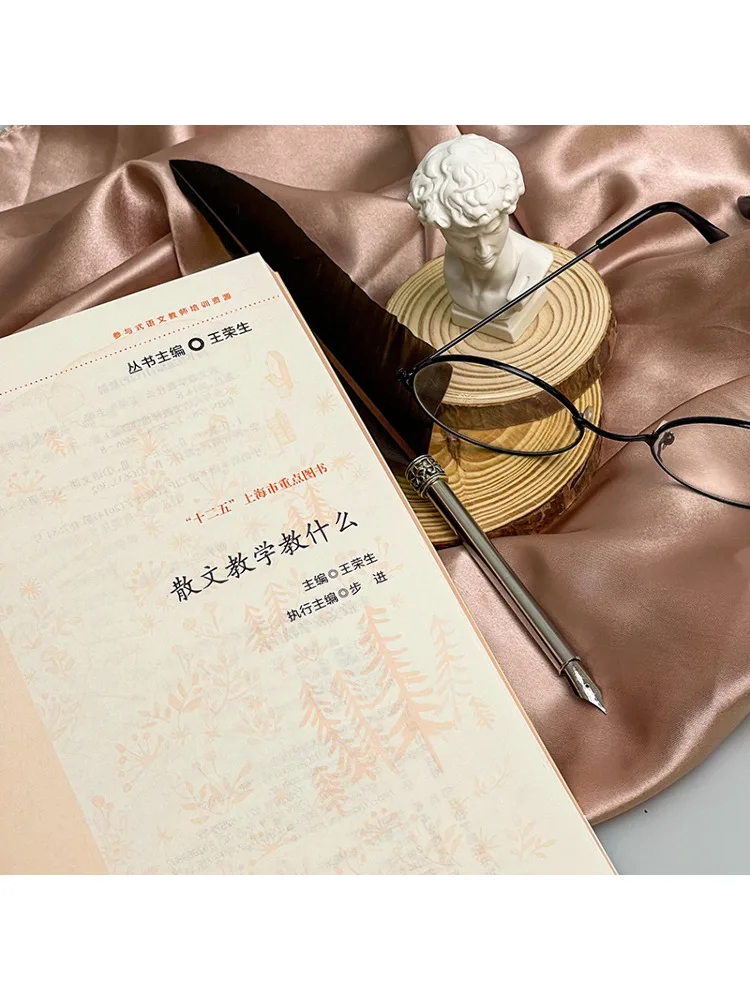 参与式语文教师培训资源
丛书主编 王荣生
“十二五”上海市重点图书
散文教学教什么
主编◎王荣生
执行主编◎步 进